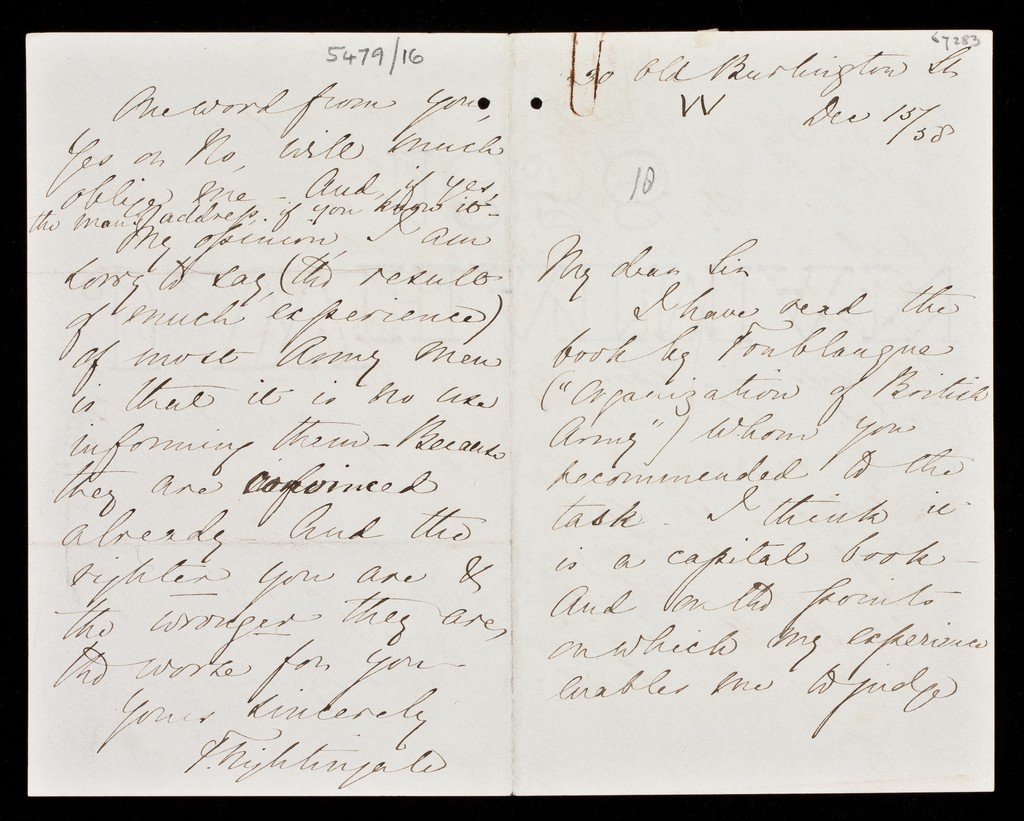 67283
30 Old Burlington St
W
Dec 15/58
10
My dear Sir
I have read the
book by Fonblanque
("Organization of British
Army") whom you
recommended to the
task. I think it
is a capital book -
And on the points
on which my experience
enables me to judge
5479/16
One word from you,
Yes or No, will much
oblige me - And, if yes,
the man's address, if you know it -
My opinion, I am
sorry to say, (the result
of much experience)
of most Army men
is that it is no use
informing them - Because
they are convinced
already - And the
righter you are &
the wronger they are,
the worse for you -
Yours sincerely
F. Nightingale